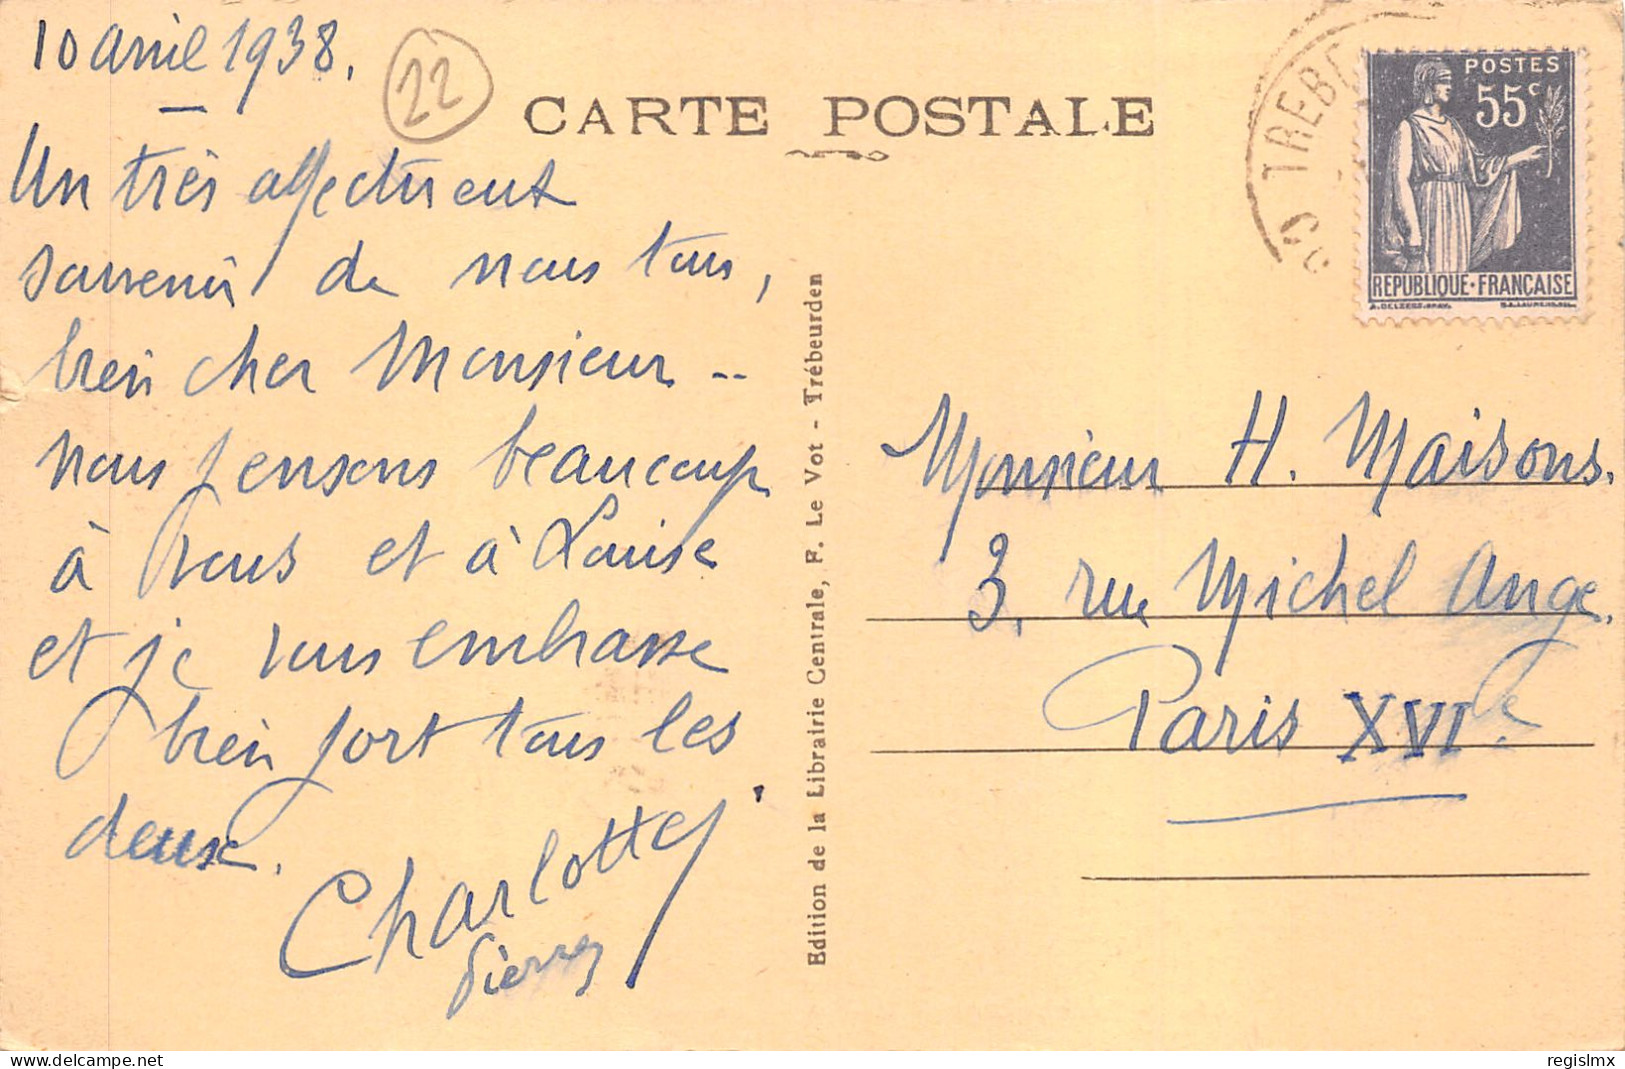 10 avril 1938.
22
CARTE POSTALE
Un très affectueux
souvenir de nous tous,
bien cher Monsieur --
nous pensons beaucoup
à vous et à Louise
et je vous embrasse
bien fort tous les
deux.
Charlotte
Pierre
Edition de la Librairie Centrale, F. Le Vot - Trébeurden
TREBE
POSTES
55c
REPUBLIQUE·FRANÇAISE
Monsieur H. Maisons.
3, rue Michel Ange.
Paris XVIe.
delcampe.net
regislmx